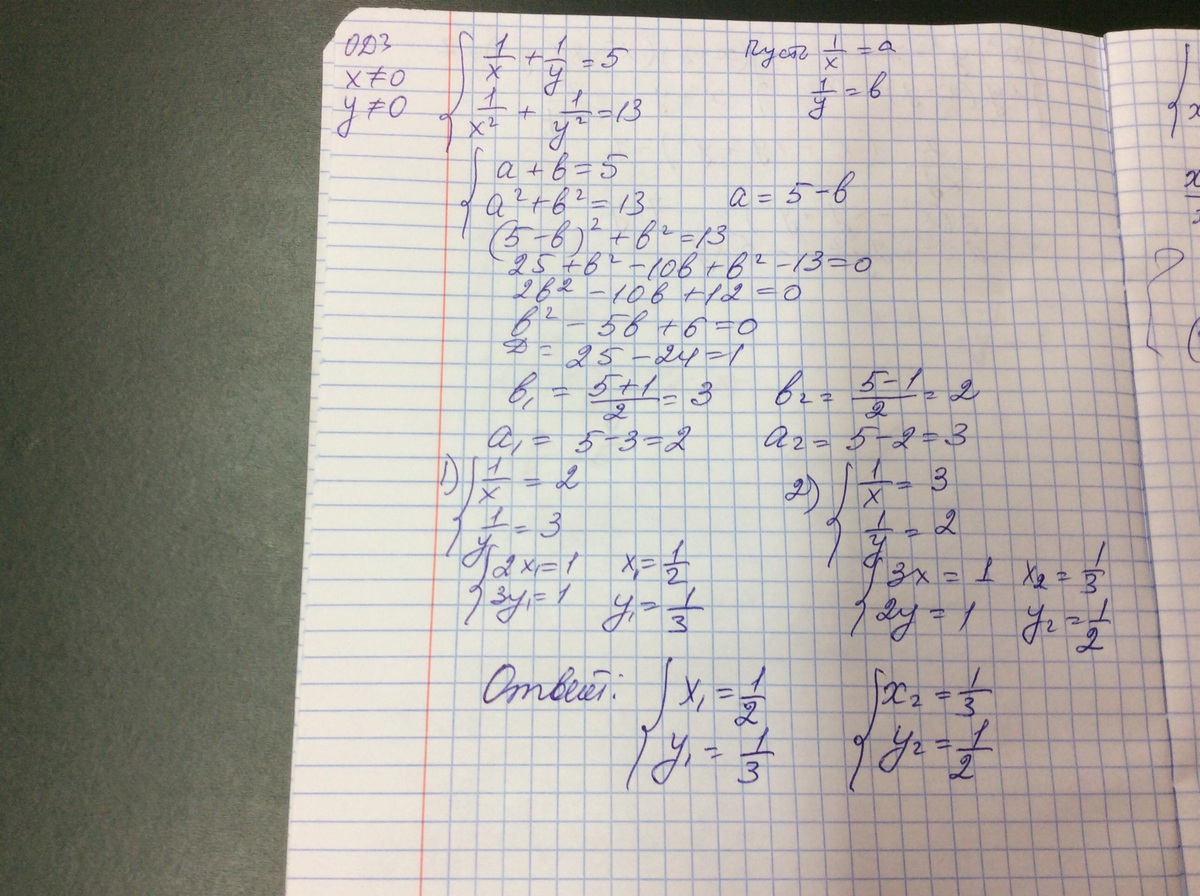 ОДЗ
x≠0
y≠0
{ 1/x + 1/y = 5
1/x² + 1/y² = 13
Пусть 1/x = a
1/y = b
{ a + b = 5
a² + b² = 13
a = 5 - b
(5 - b)² + b² = 13
25 + b² - 10b + b² - 13 = 0
2b² - 10b + 12 = 0
b² - 5b + 6 = 0
D = 25 - 24 = 1
b₁ = (5+1)/2 = 3 b₂ = (5-1)/2 = 2
a₁ = 5 - 3 = 2 a₂ = 5 - 2 = 3
1) { 1/x = 2
1/y = 3
{ 2x₁ = 1 x₁ = 1/2
3y₁ = 1 y₁ = 1/3
2) { 1/x = 3
1/y = 2
{ 3x = 1 x₂ = 1/3
2y = 1 y₂ = 1/2
Ответ: { x₁ = 1/2 { x₂ = 1/3
y₁ = 1/3 y₂ = 1/2